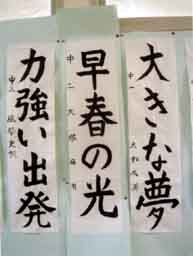 大きな夢
中一
早春の光
中二
力強い出発
中三